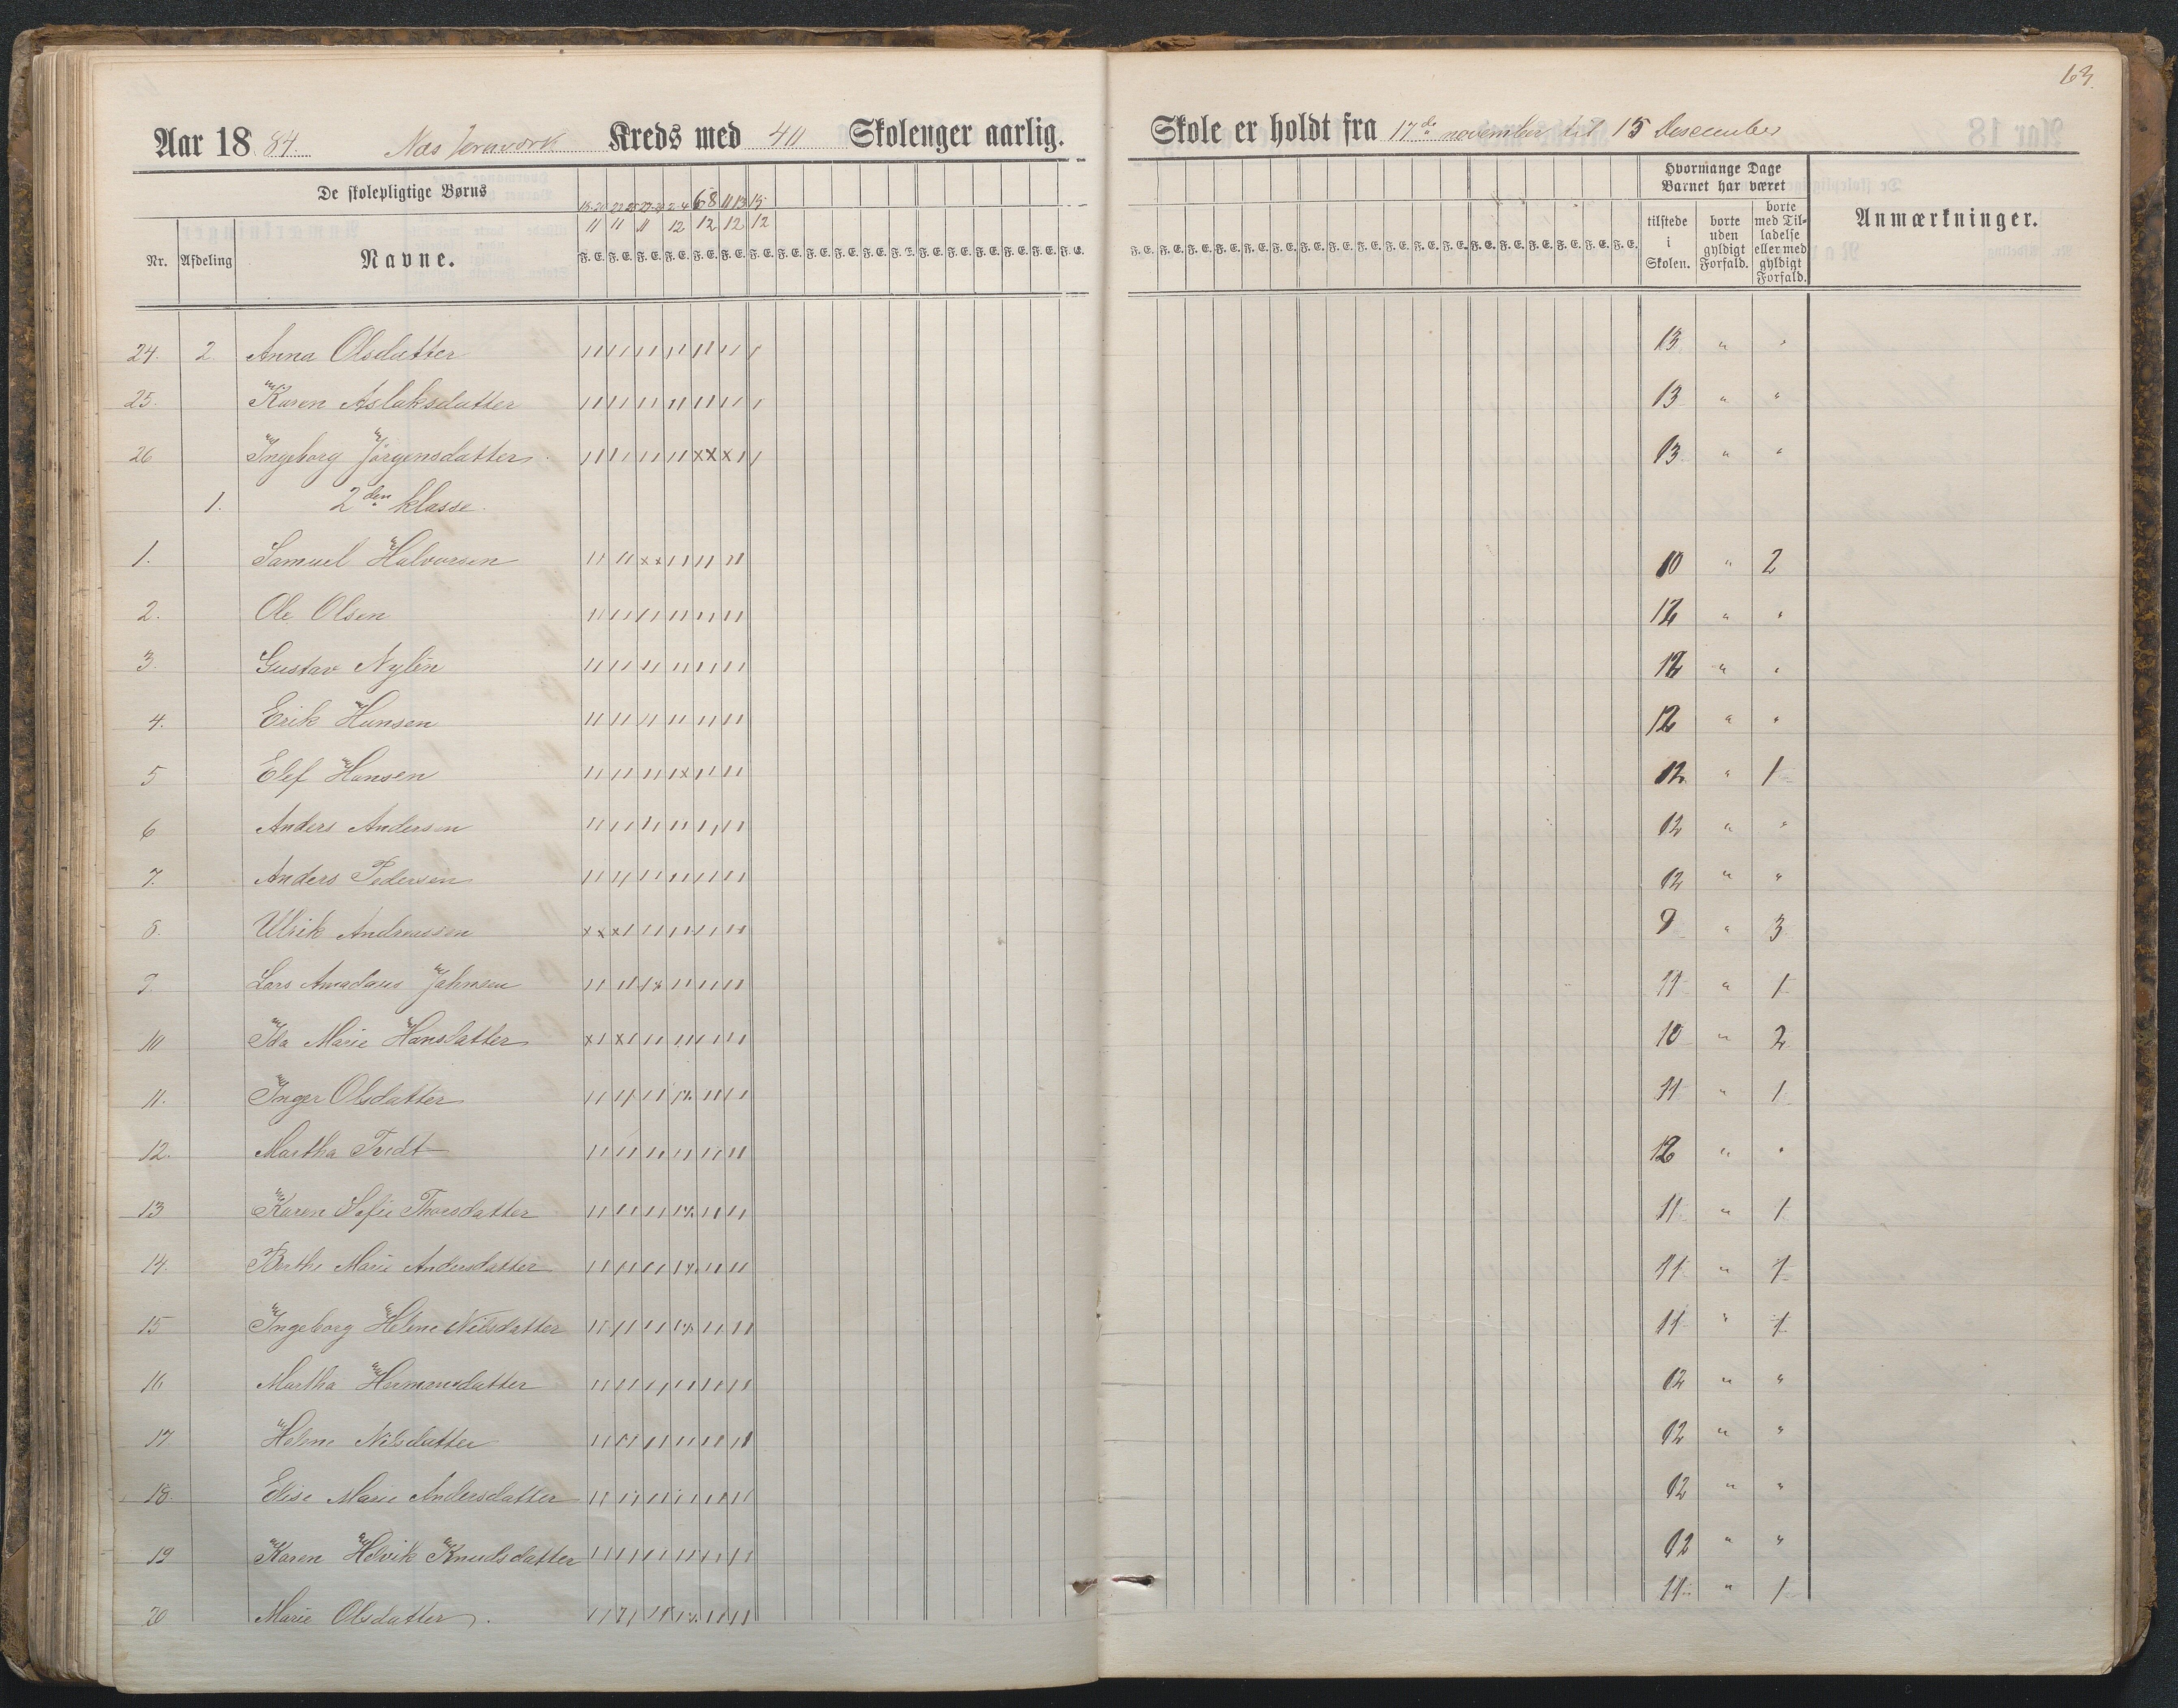 63.
Aar 18 84. Næs Jernværk Kreds med 40 Skolenger aarlig. Skole er holdt fra 17de november til 15 Desember
De skolepligtige Børns
Nr. Afdeling Navne.
F. E. F. E. F. E. F. E. F. E. F. E. F. E. F. E. F. E. F. E. F. E.
11 11 11 12 12 12 12
Hvormange Dage Barnet har været
tilstede i Skolen.
borte uden gyldigt Forfald.
borte med Tilladelse eller med gyldigt Forfald.
Anmærkninger.
24. 2. Anna Olsdatter 13 " "
25. Karen Aslaksdatter 13 " "
26 Ingeborg Jörgensdatter 13 " "
1. 2den klasse.
1. Samuel Halvorsen 10 " 2
2. Ole Olsen 12 " "
3. Gustav Nylén 12 " "
4. Erik Hansen 12 " "
5 Elef Hansen 12 " 1
6 Anders Andersen 12 " "
7. Anders Pedersen 12 " "
8. Ulrik Andreassen 9 " 3
9. Lars Amadaus Jahnsen 11 " 1
10 Ida Marie Hansdatter 10 " 2
11. Inger Olsdatter 11 " 1
12. Martha Tvedt 12 " "
13 Karen Sofie Thorsdatter 11 " 1
14. Berthe Marie Andersdatter 11 " 1
15 Ingeborg Helene Nilsdatter 11 " 1
16 Martha Hermansdatter 12 " "
17 Helene Nilsdatter 12 " "
18. Elise Marie Andersdatter 12 " "
19 Karen Helvik Knudsdatter 12 " "
20 Marie Olsdatter. 11 " 1